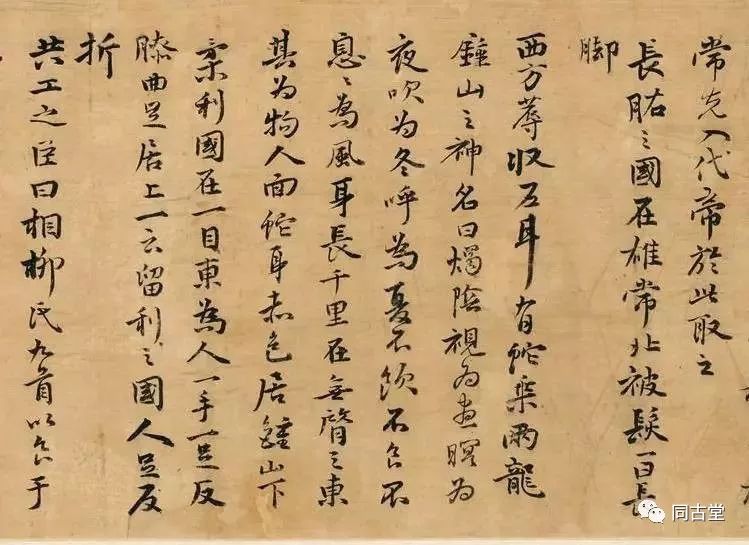 常先入代帝於此取之
長股之國在雄常北被髮一曰長
脚
西方蓐收左耳有蛇乘兩龍
鍾山之神名曰燭陰視為晝暝為
夜吹為冬呼為夏不飲不食不
息〻為風身長千里在無䏿之東
其為物人面蛇身赤色居鍾山下
柔利國在一目東為人一手一足反
膝曲足居上一云留利之國人足反
折
共工之臣曰相柳氏九首以食于
同古堂